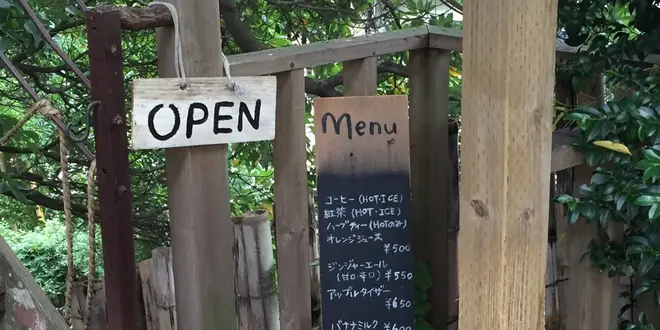 OPEN
Menu
コーヒー (HOT・ICE)
紅茶 (HOT・ICE)
ハーブティー (HOTのみ)
オレンジジュース
¥500
ジンジャーエール
(甘口・辛口) ¥550
アップルタイザー
¥650
バナナミルク
¥600